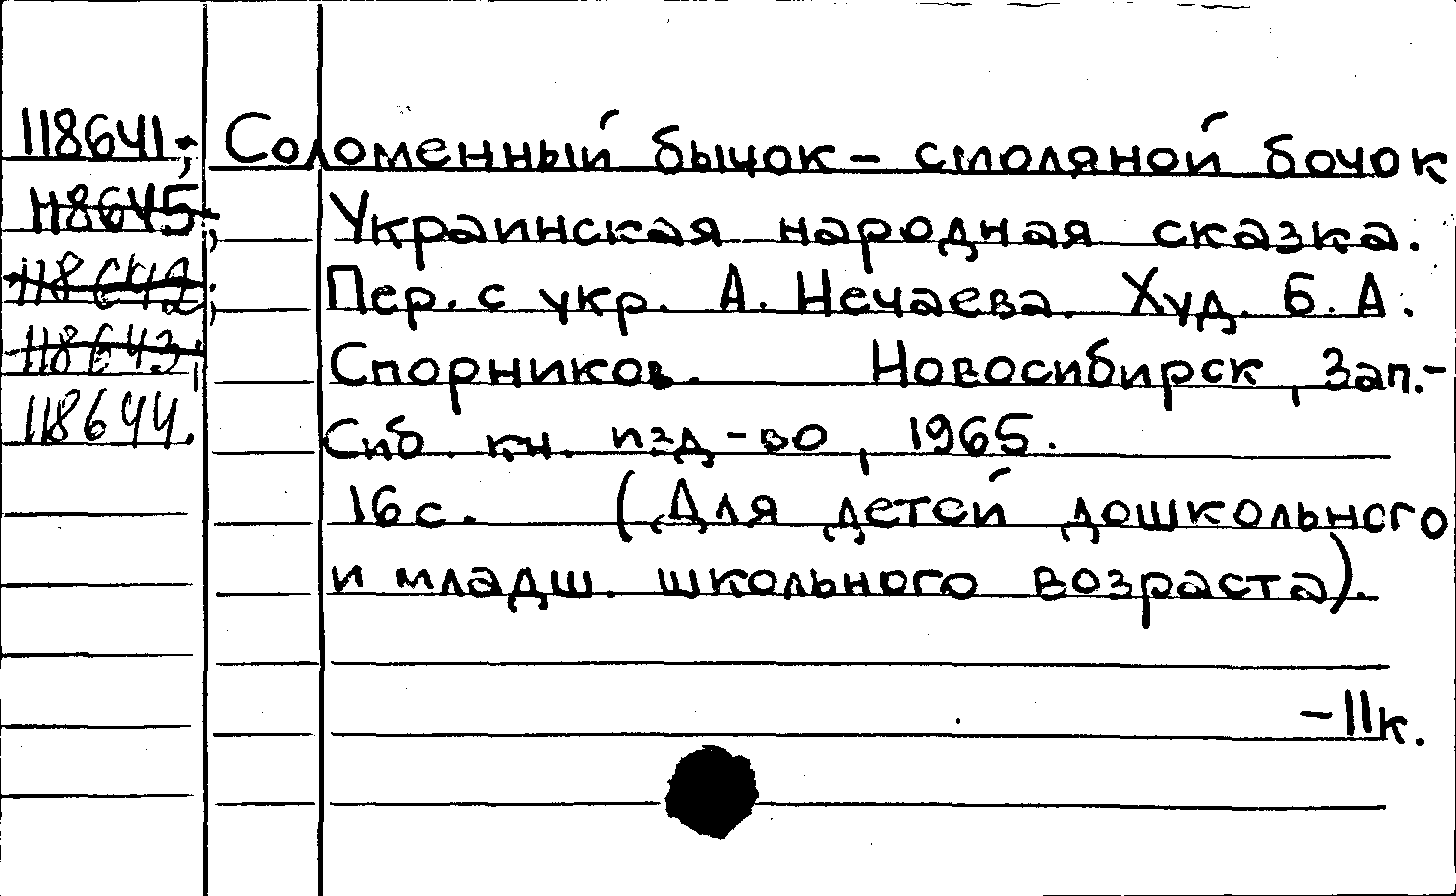 118641; Соломенный бычок - смоляной бочок
118645; Украинская народная сказка.
118642; Пер. с укр. А. Нечаева. Худ. Б. А.
118643; Спорников. Новосибирск, Зап.-
118644. Сиб. кн. изд-во, 1965.
16 с. (Для детей дошкольного
и младш. школьного возраста).
-11к.